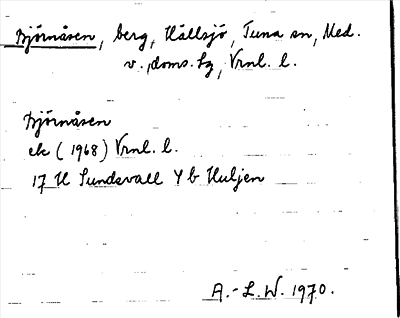 Björnåsen, berg, Hällsjö, Tuna sn, Med.
v. doms. sg, Vrnl. l.
Björnåsen
ek (1968) Vrnl. l.
17 H Sundsvall Y b Huljen
A.-L.W. 1970.